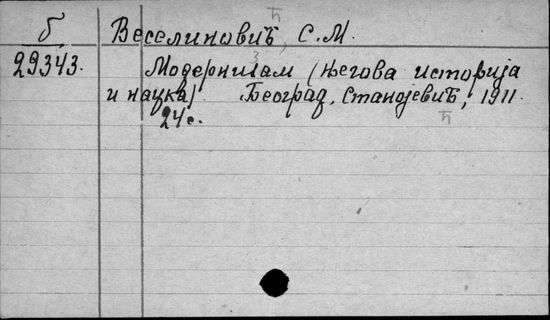 ћ
б Веселиновић, С.М.
29343. Модернизам (његова историја
и наука) Београд, Станојевић, 1911.
24с. ћ